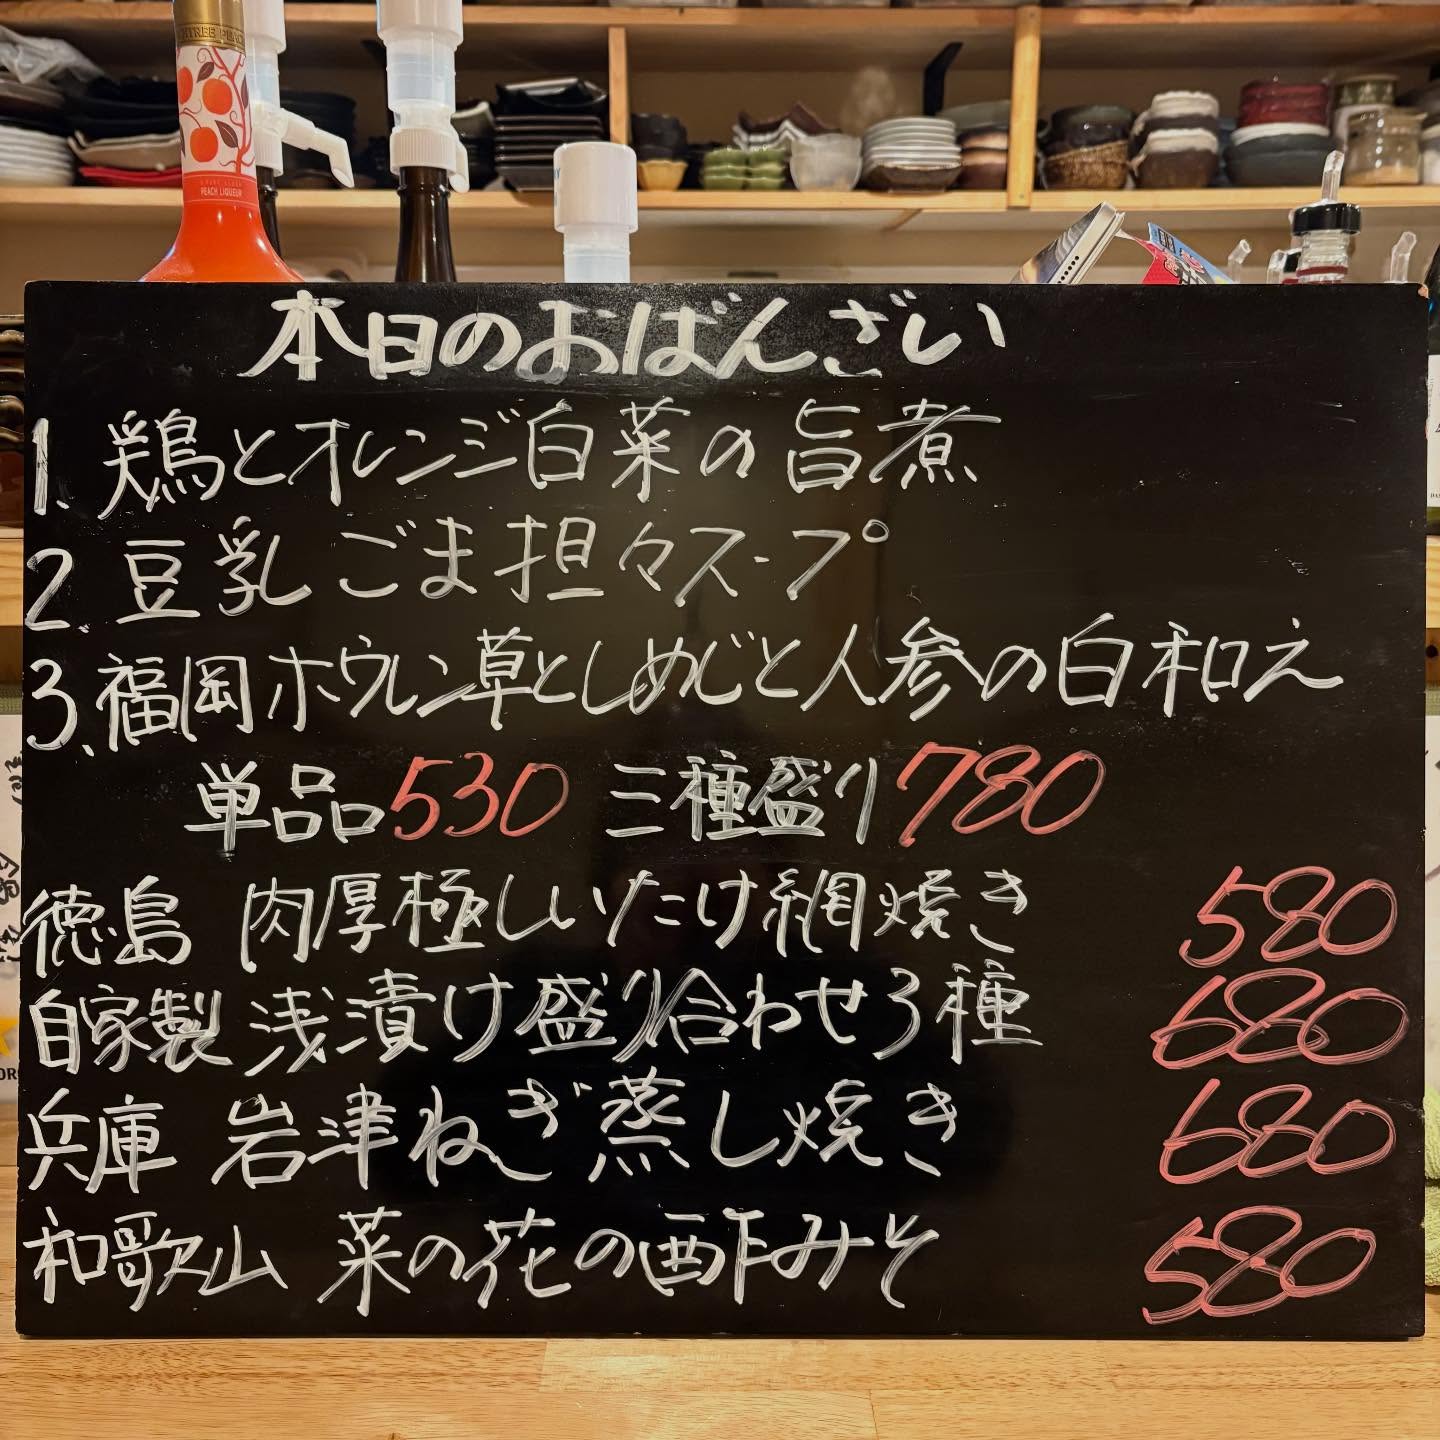 TREE PEACH
PEACH LIQUEUR
本日のおばんざい
1. 鶏とオレンジ白菜の旨煮
2. 豆乳ごま担々スープ
3. 福岡ホウレン草としめじと人参の白和え
単品530 三種盛り780
徳島 肉厚極しいたけ網焼き 580
自家製 浅漬け盛り合わせ3種 680
兵庫 岩津ねぎ蒸し焼き 680
和歌山 菜の花の酢みそ 580